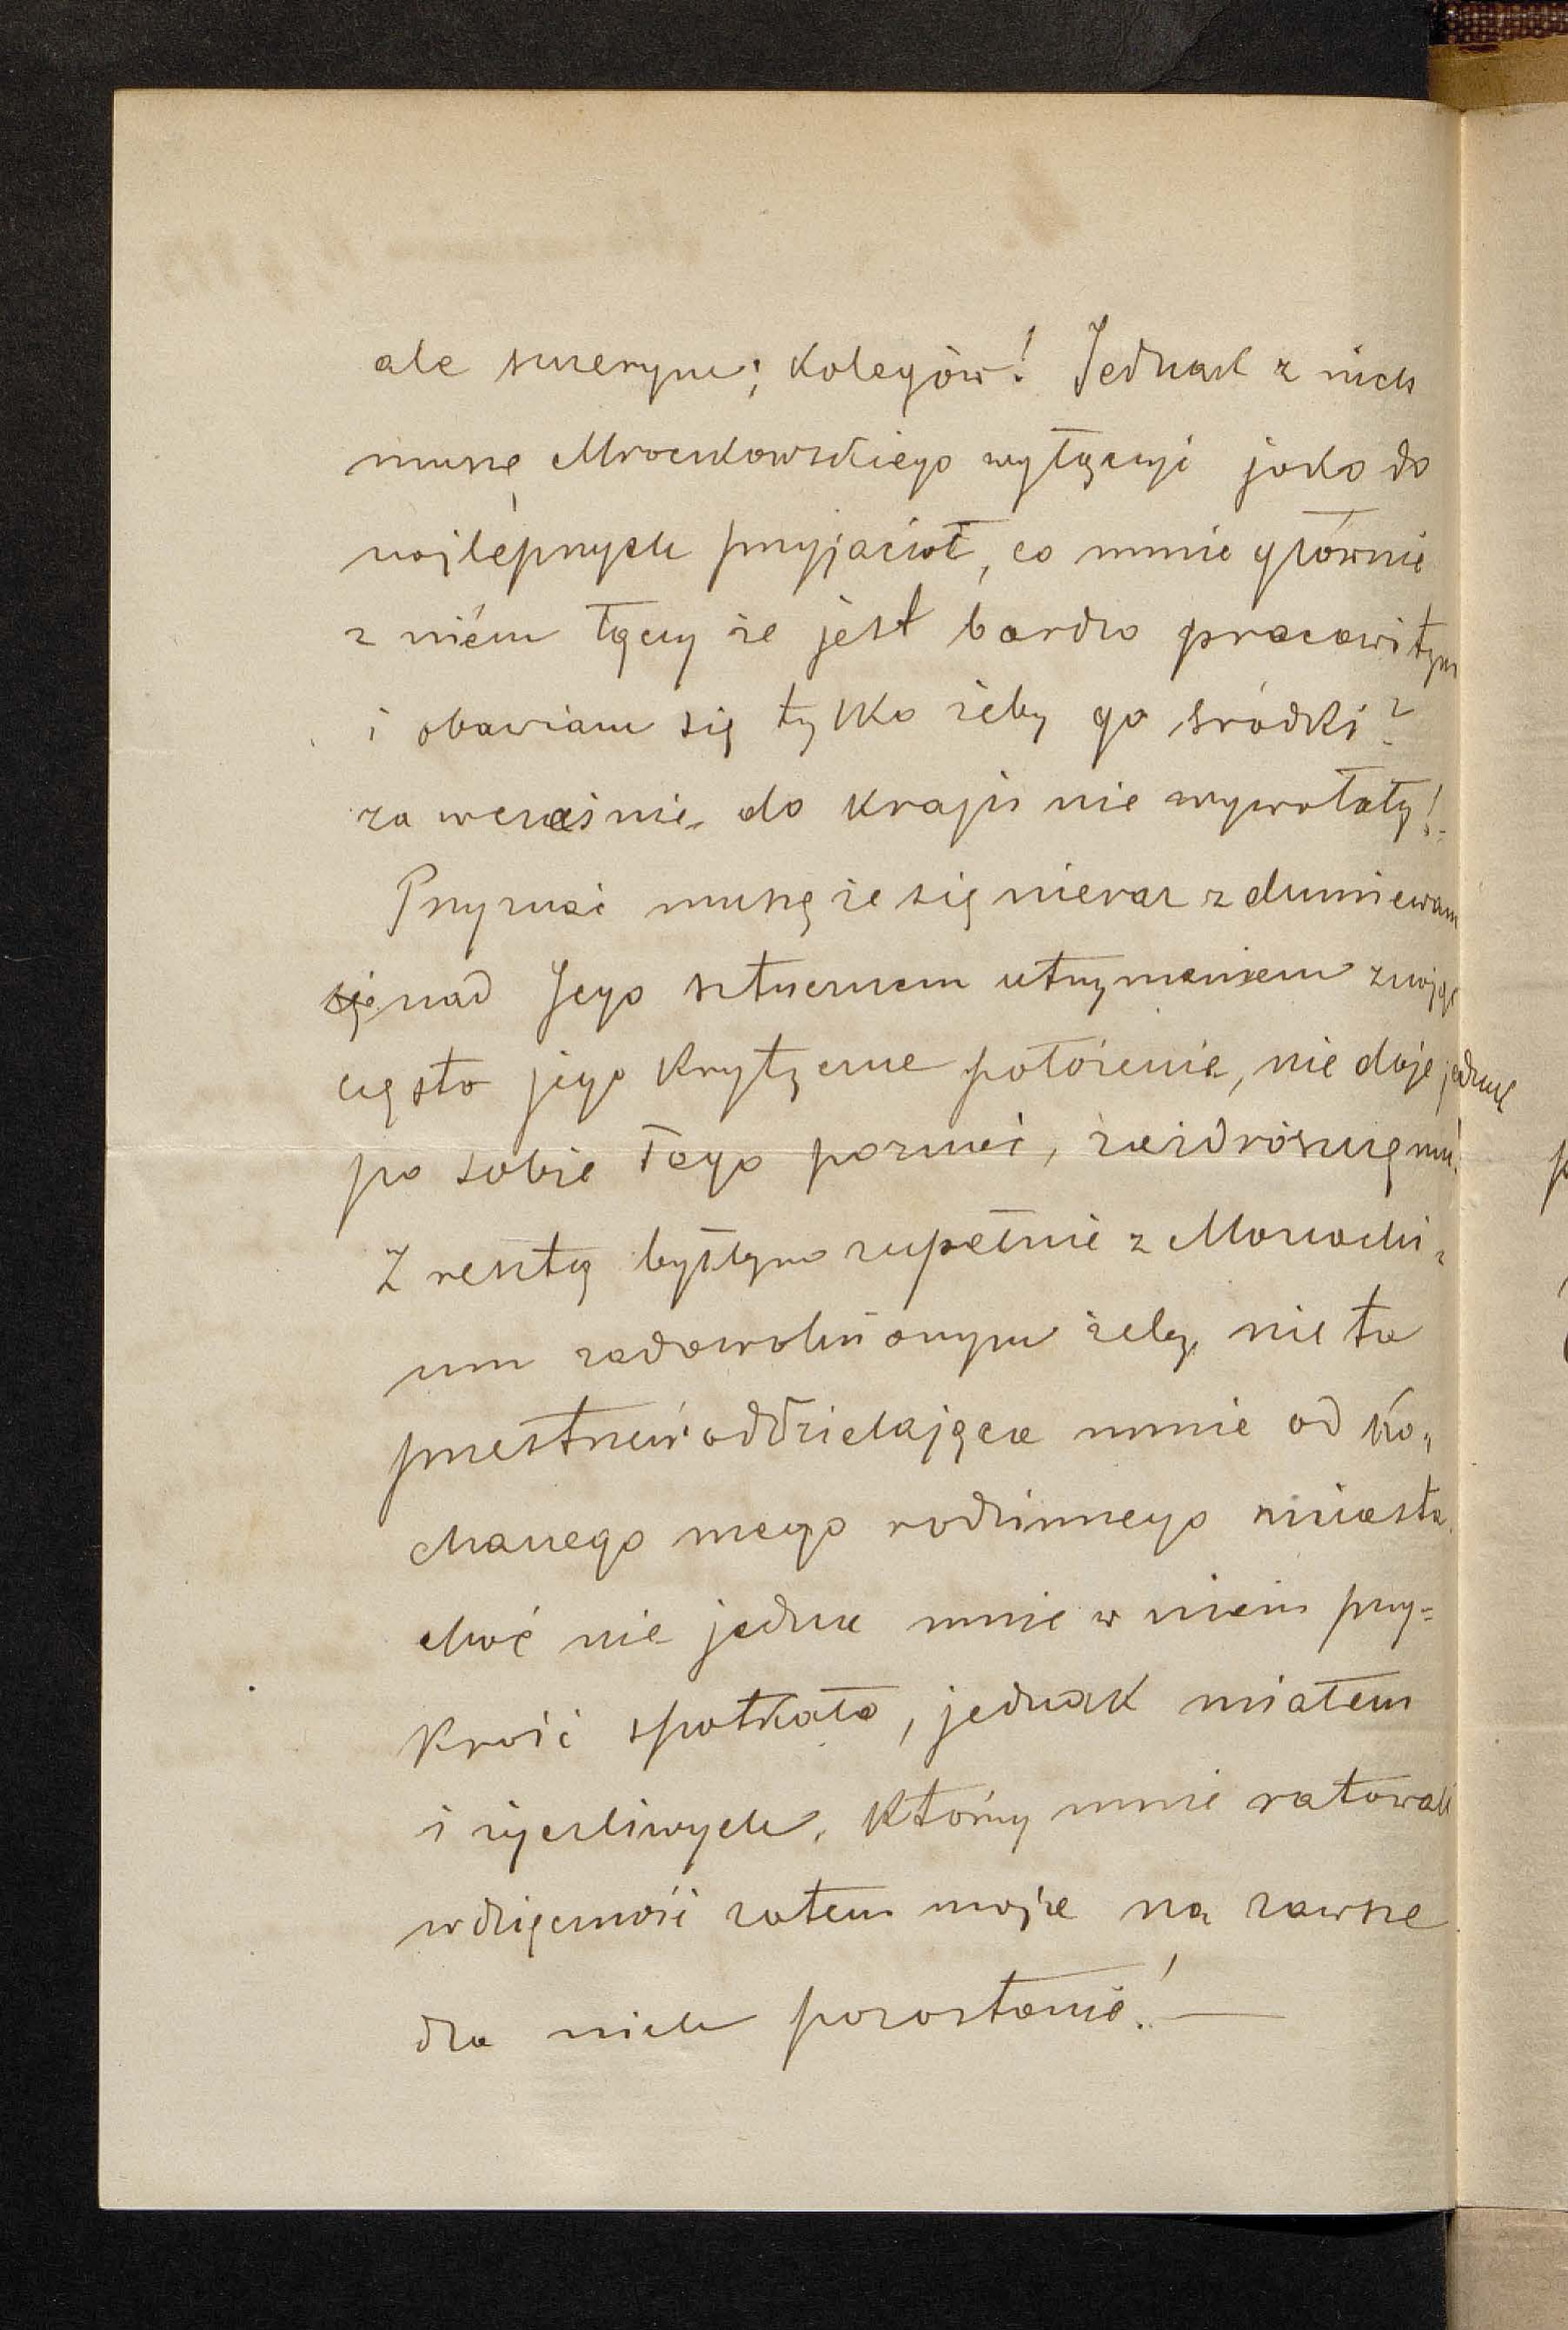 ale szczerym; kolegów! Jednak z nich
muszę Mroczkowskiego wyłączyć jako do
najlepszych przyjaciół, co mnie głównie
z niém łączy że jest bardzo pracowitym
i obawiam się tylko żeby go środki?
za wcześnie do kraju nie wywołały!
Przyznać muszę że się nieraz zdumiewam
nad Jego sztucznem utrzymaniem znając
często jego krytyczne położenie, nie daje jednak
po sobie tego poznać, zazdroszczę mu!
Z resztą byłbym zupełnie z Monachi-
um zadowolnionym żeby nie ta
przestrzeń oddzielająca mnie od Ko„
chanego mego rodzinnego miasta.
choć nie jedna mnie w niem przy=
krość spotkała, jednak miałem
i życzliwych, którzy mnie ratowali
wdzięczność zatem moja na zawsze
dla nich pozostanie! —